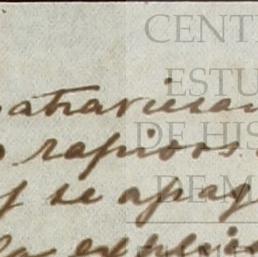 CENT
atraviesan
ESTU
rapidos
DE HIS
y se apag
DE M
la explic